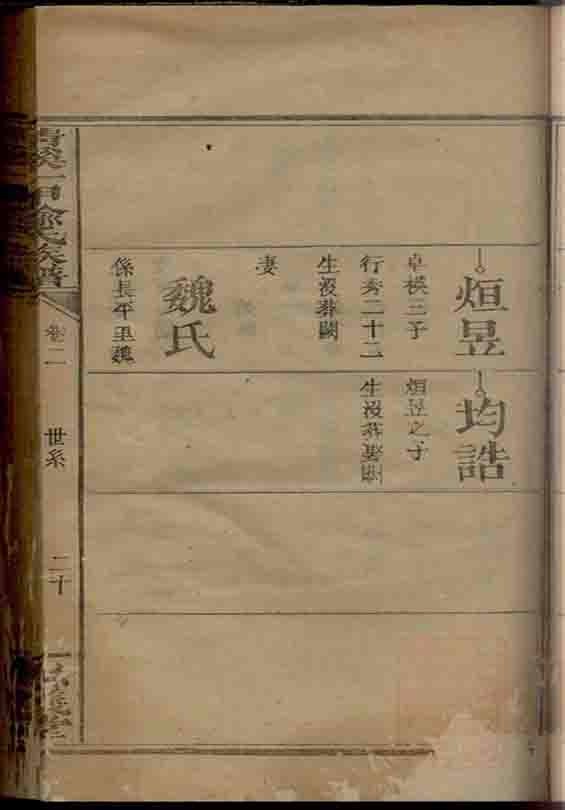 烜昱
卓模三子
行秀二十二
生沒葬闕
妻
魏氏
係長平里魏
均誥
烜昱之子
生沒葬娶闕
一甲俞氏族譜
卷二
世系
二十